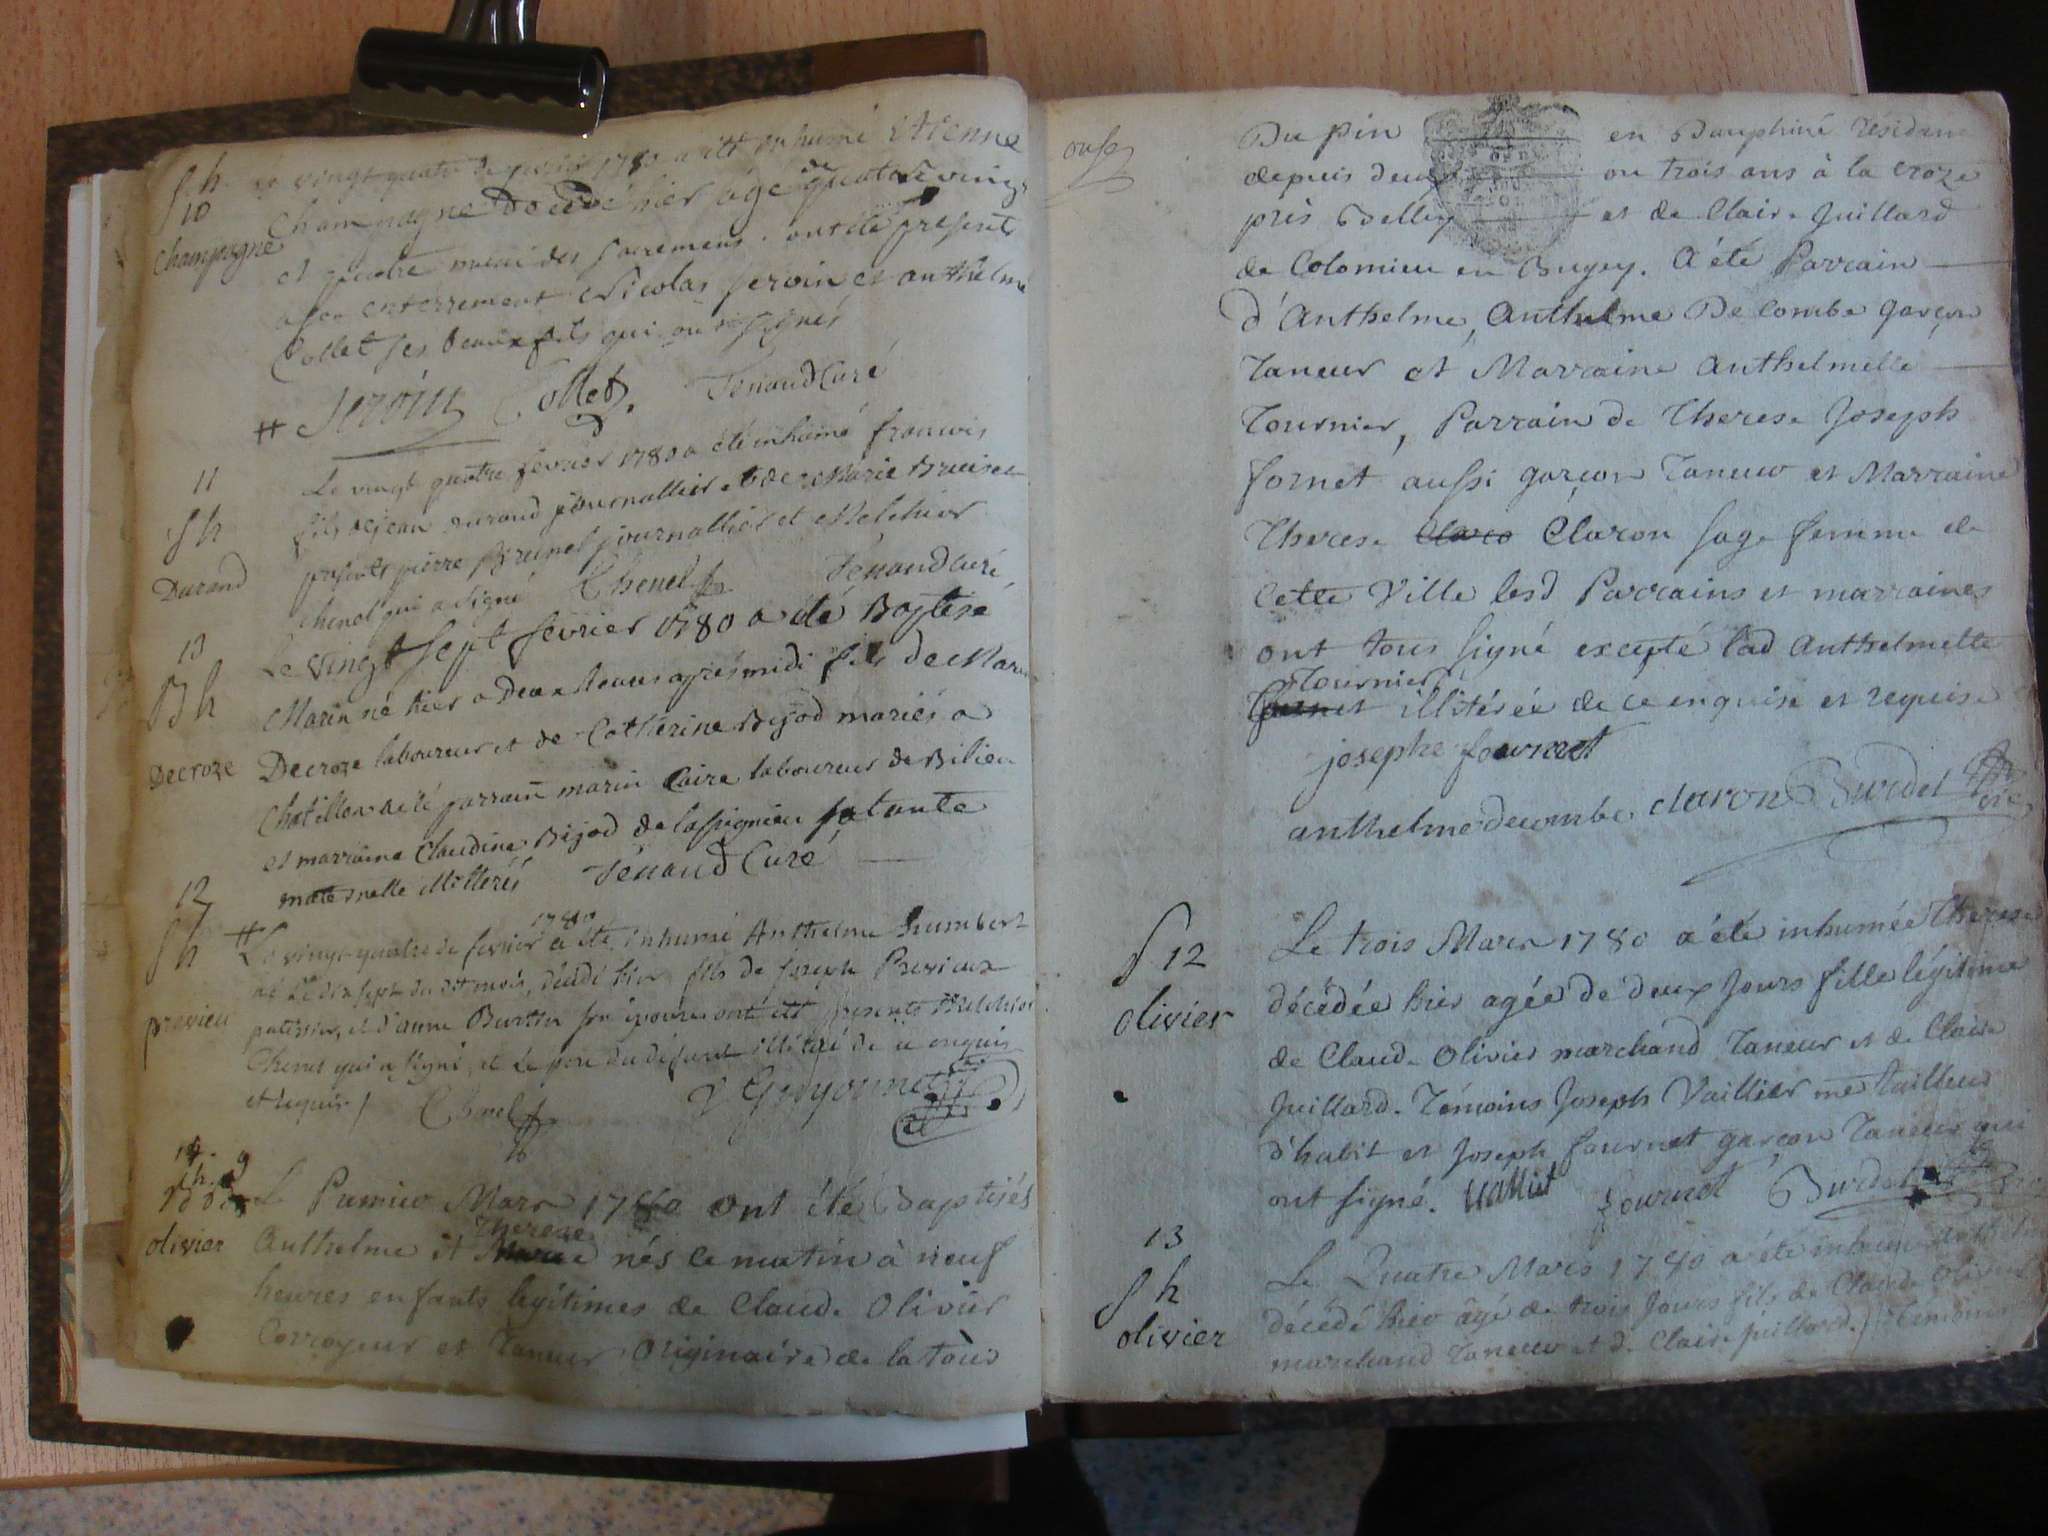 S. h.
10
Champagne
Le vingt quatre fevrier 1780 a été inhumé Etienne
Champagne décédé hier agé de quatre vingt
et quatre muni des sacremens. ont été presents
a son enterrement Nicolas Seroin et anthelme
Collet ses beaux fils qui ont signés
# Seroin Collet Tenaud Curé
11
S h
Durand
Le vingt quatre fevrier 1780 a été inhumé francois
fils de jean durand journallier et de Marie
presents pierre Brunel journallier et Melchior
chenel qui a signé Chenel Tenaud curé
13
B h
Decroze
Le vingt sept fevrier 1780 a été Baptisé
Marin né hier a deux heures après midi fils de Marin
Decroze laboureur et de Catherine Bijod mariés a
Chatillon a été parrain marin Caire laboureur de Bilieu
et marraine Claudine Bijod de sa tante
maternelle illitterés Tenaud Curé
12
S h
previeu
# Le vingt-quatre de fevrier 1780 a été inhumé Anthelme humbert
né le dix sept du dit mois, décédé hier fils de joseph Previeux
patissier, et d'anne Burtin son épouse ont été presents Melchior
Chenel qui a signé, et le pere du défunt illitéré de ce enquis
et requis / Chenel V Guyonnet
14. 9
h.
olivier
Le Premier Mars 1780 ont été Baptisés
Anthelme et Therese nés ce matin à neuf
heures enfants légitimes de Claude Olivier
Corroyeur et Taneur Originaire de la tour
onse
Du pin en Dauphiné résidant
depuis deux ou trois ans à la croze
près Belley et de Claire Juillard
de Colomieu en Bugey. A été Parrain
d'Anthelme, Anthelme Decombe garçon
Taneur et Marraine Anthelmette
Tournier, Parrain de Therese Joseph
fornet aussi garçon Taneur et Marraine
Therese Claro Claron sage femme de
cette Ville lesd Parrains et marraines
ont tous signé excepté lad Anthelmette
Tournier
illitérée de ce enquise et requise
josephe fournet
anthelme decombe claron Burdet Vic
S 12
olivier
Le trois Mars 1780 a été inhumée Therese
décédée hier agée de deux Jours fille légitime
de Claude Olivier marchand Taneur et de Claire
Juillard. Témoins Joseph Vaillier me tailleur
d'habit et Joseph fournet garçon Taneur qui
ont signé. fournet Burdet
13
S h
olivier
Le Quatre Mars 1780 a été inhumé Anthelme
décédé hier âgé de trois Jours fils de Claude Olivier
marchand Taneur et de Claire juillard. / Temoins